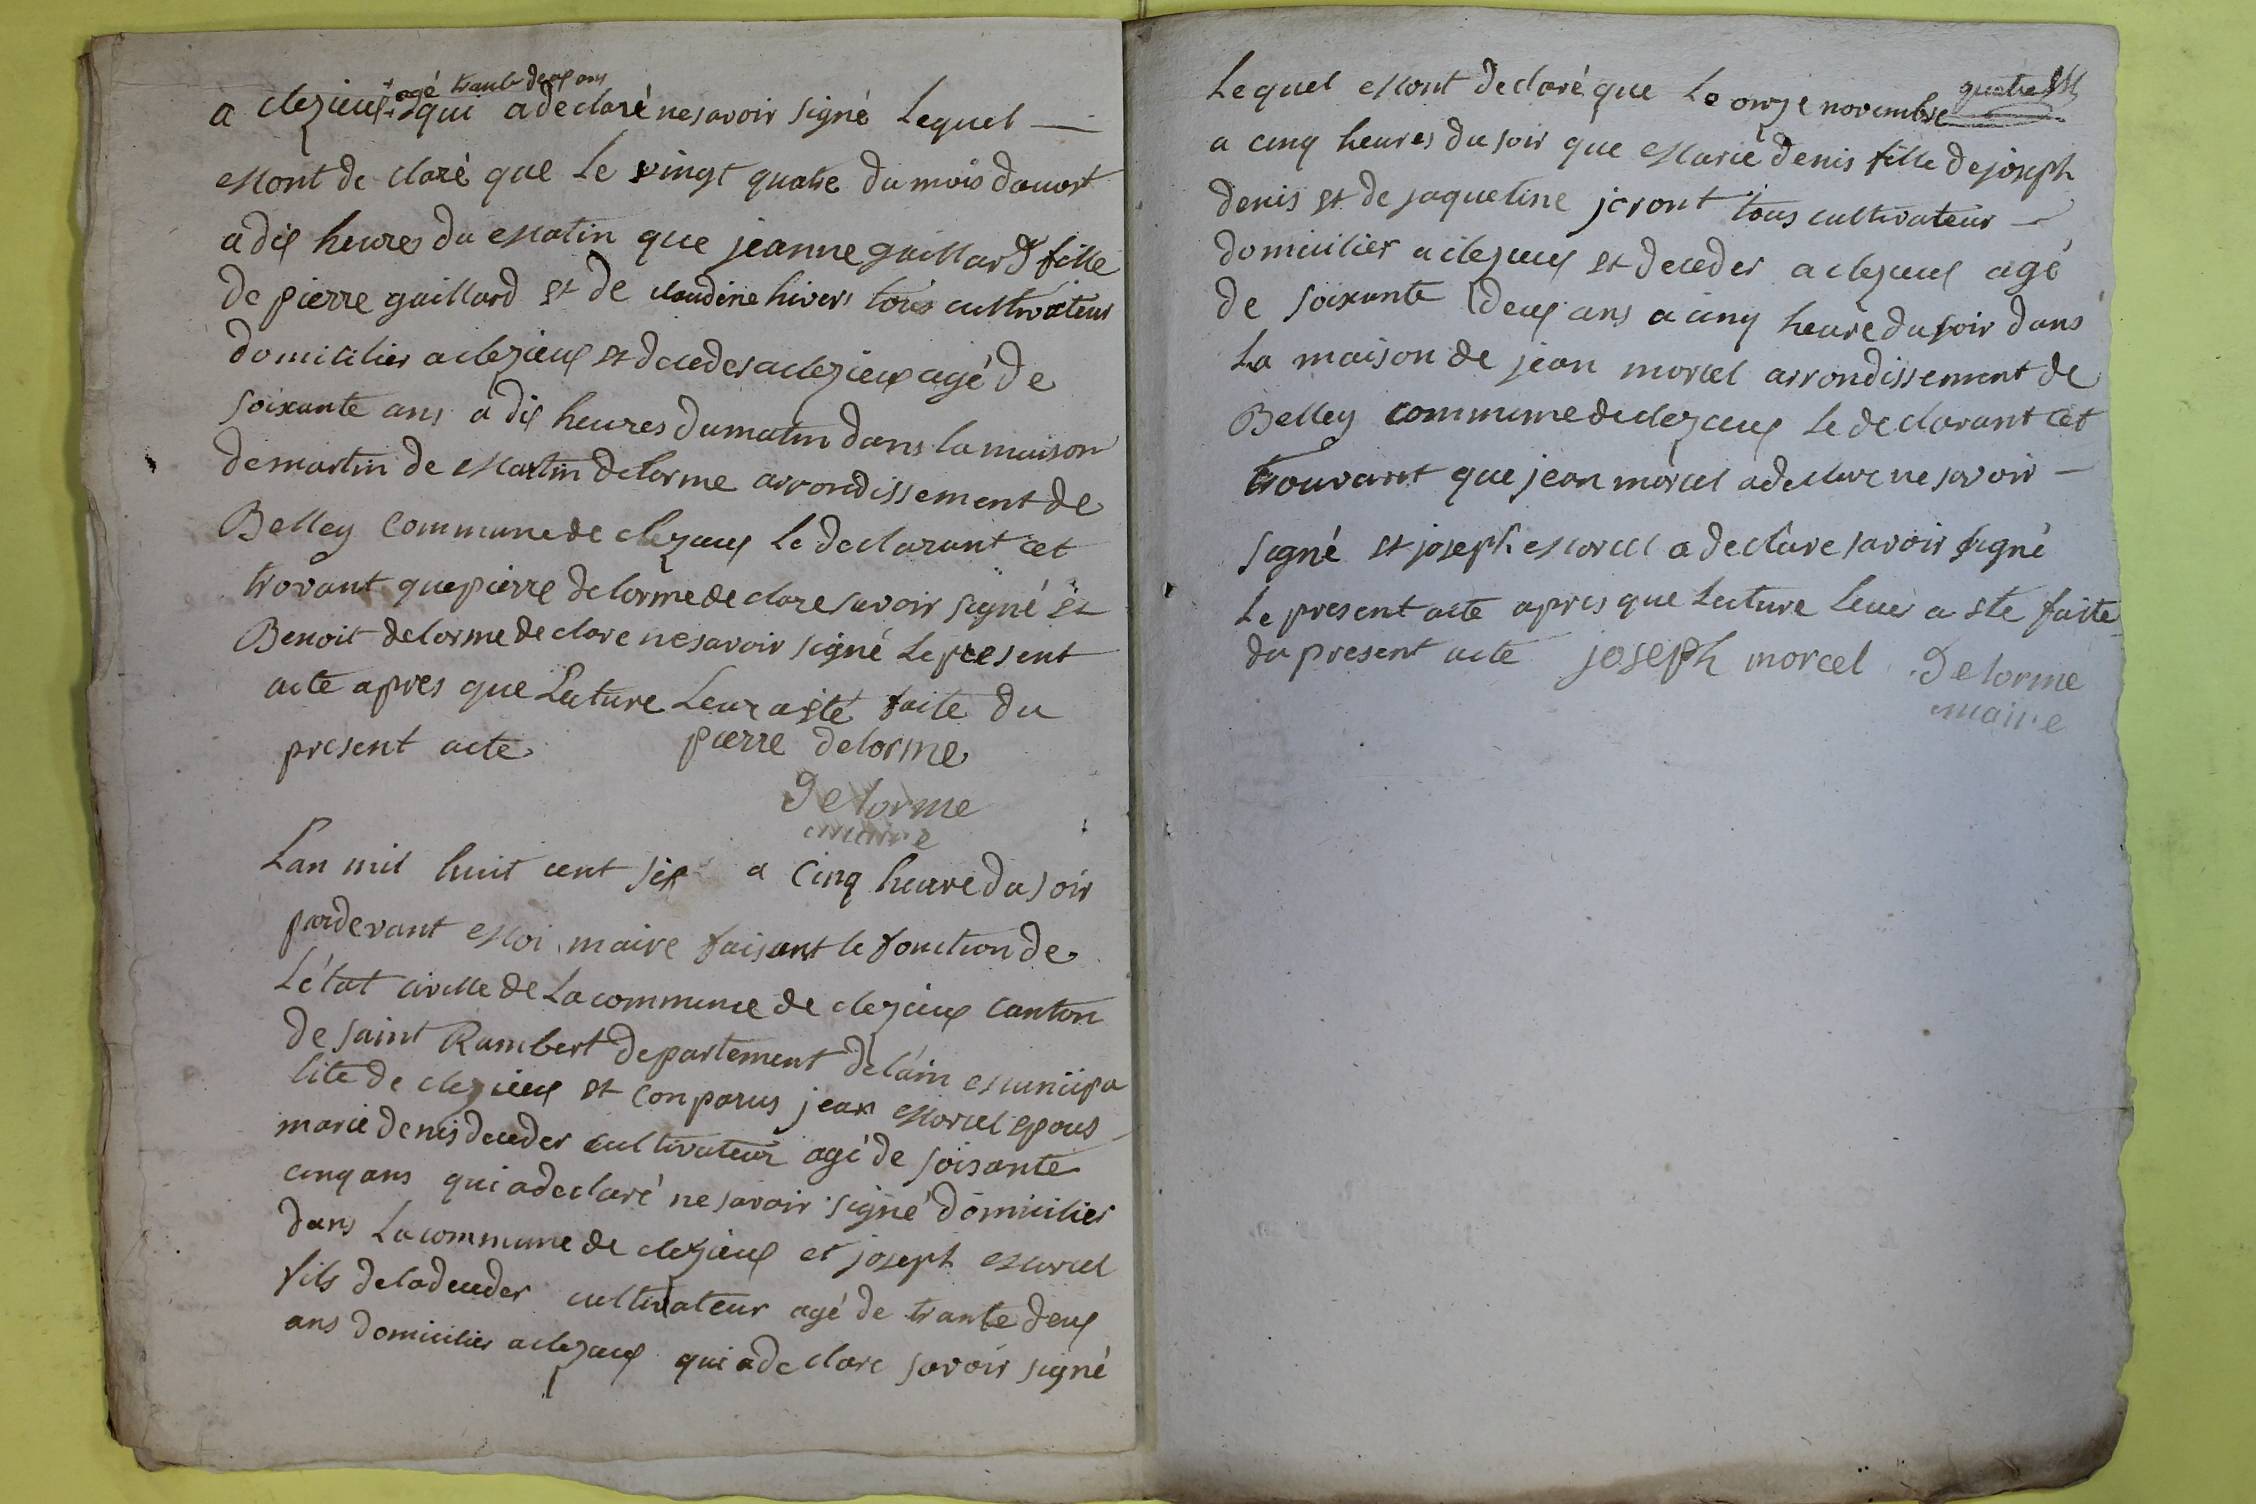 + agé trante deux ans
a clezieux + qui a declaré ne savoir signé Lequel —
Mont de claré que Le vingt quatre du mois d'auost
a dix heures du Matin que jeanne gaillard fille
De pierre gaillard et de claudine hivers tous cultivateur
domicilier a clezieux et deceder a clezieux agé De
soixante ans a dix heures du matin dans la maison
de martin de Martin delorme arrondissement de
Belley Commune de clezieux Le declarant cet
trovant que pierre delorme de clare savoir signé et
Benoit delorme de clare ne savoir signé Le present
acte apres que Lecture Leur a eté faite du
present acte pierre delorme
Delorme
maire
Lan mil huit cent six a cinq heure du soir
pardevant Moi maire faisant le fonction de
L'état civille de La commune de clezieux Canton
de saint Rambert departement de l'ain Municipa
lite de clezieux et Conparus jean Morcel epous
marie denis deceder cultivateur agé de soisante
cinq ans qui a declaré ne savoir signé Domicilier
dans La commune de clezieux et joseph Morcel
fils de la deceder cultivateur agé de trante deux
ans Domicilier a clezieux qui a de clare savoir signé
quatre
Lequel Mont declaré que Le onze novembre
a cinq heures du soir que Marie denis fille de joseph
denis et de jaqueline jcront tous cultivateur —
domicilier a clezieux et deceder a clezieux agé
de soixante deux ans a cinq heure du soir dans
La maison de jean morcel arrondissement de
Belley commune de clezieux Le declarant cet
trouvant que jean morcel a declare ne savoir —
signé et joseph Morcel a declare savoir signé
Le present acte apres que Lecture Leur a ete faite
du present acte joseph morcel Delorme
maire